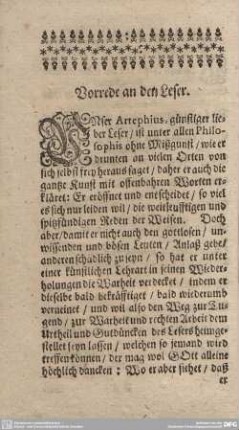 Vorrede an den Leser.
UNser Artephius, günstiger lie-
ber Leser / ist unter allen Philo-
sophis ohne Mißgunst / wie er
drunten an vielen Orten von
sich selbst frey heraus saget / daher er auch die
gantze Kunst mit offenbahren Worten er-
kläret: Er eröffnet und entscheidet / so viel
es sich nur leiden wil / die weitläufftigen und
spitzfündigen Reden der Weisen. Doch
aber / damit er nicht auch den gottlosen / un-
wissenden und bösen Leuten / Anlaß gebe /
anderen schädlich zu seyn / so hat er unter
einer künstlichen Lehrart in seinen Wieder-
holungen die Warheit verdecket / indem er
dieselbe bald bekräfftiget / bald wiederumb
verneinet / und wil also den Weg zur Tu-
gend / zur Warheit und rechten Arbeit dem
Urtheil und Gutdüncken des Lesers heimge-
stellet seyn lassen / welchen so jemand wird
treffen können / der mag wol GOtt alleine
höchlich dancken: Wo er aber siehet / daß
er